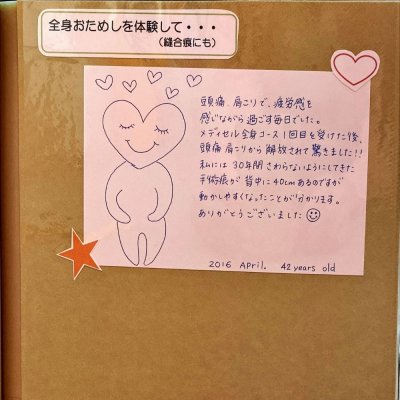 全身おためしを体験して・・・
（縫合痕にも）
頭痛、肩こりで、疲労感を
感じながら過ごす毎日でした。
メディセル全身コース1回目を受けた後、
頭痛肩こりから解放されて驚きました!!
私には30年間さわらないようにしてきた
手術痕が背中に40cmあるのですが
動かしやすくなったことが分かります。
ありがとうございました
2016 April. 42 years old